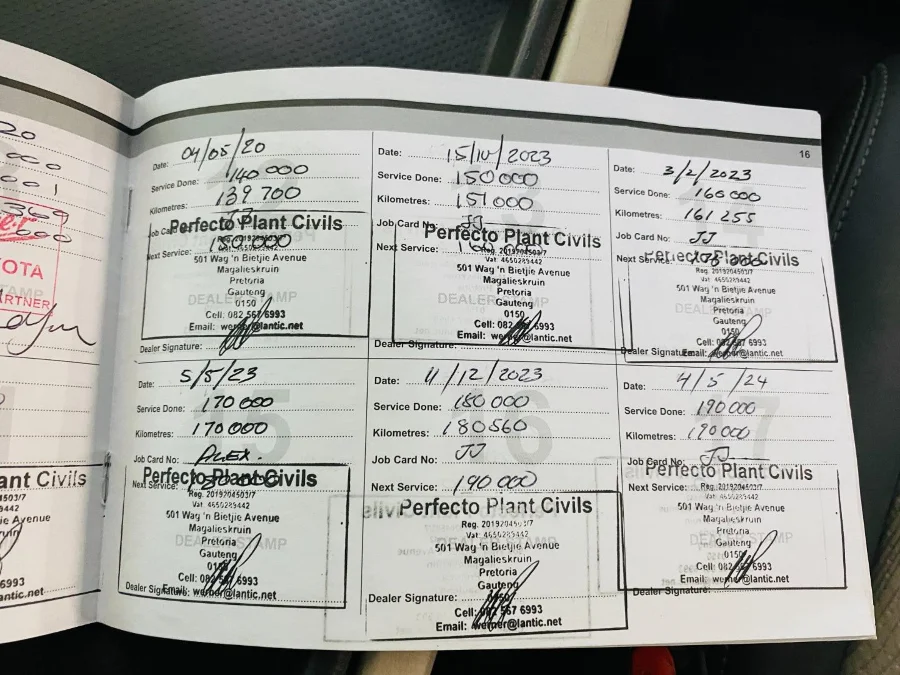 20
000
001
369
000
TOYOTA
PARTNER
16
Date: 04/05/20
Service Done: 140 000
Kilometres: 139 700
Job Card No:
Next Service: 150 000
Perfecto Plant Civils
Reg. 2019204503/7
Vat: 4650289442
501 Wag 'n Bietjie Avenue
Magalieskruin
Pretoria
Gauteng
0150
DEALER STAMP
Cell: 082 567 6993
Email: werner@lantic.net
Dealer Signature:
Date: 15/10/2023
Service Done: 150 000
Kilometres: 151000
Job Card No: JJ
Next Service:
Perfecto Plant Civils
Reg. 2019204503/7
Vat: 4650289442
501 Wag 'n Bietjie Avenue
Magalieskruin
Pretoria
Gauteng
0150
DEALER STAMP
Cell: 082 567 6993
Email: werner@lantic.net
Dealer Signature:
Date: 3/2/2023
Service Done: 160 000
Kilometres: 161 255
Job Card No: JJ
Next Service:
Perfecto Plant Civils
Reg. 2019204503/7
Vat: 4650289442
501 Wag 'n Bietjie Avenue
Magalieskruin
Pretoria
Gauteng
0150
Cell: 082 567 6993
Dealer Signature:
Email: werner@lantic.net
15
Date: 5/5/23
Service Done: 170 000
Kilometres: 170 000
Job Card No: ALEX.
Next Service:
Perfecto Plant Civils
Reg. 2019204503/7
Vat: 4650289442
501 Wag 'n Bietjie Avenue
Magalieskruin
Pretoria
Gauteng
0150
DEALER STAMP
Cell: 082 567 6993
Dealer Signature:
Email: werner@lantic.net
16
Date: 11/12/2023
Service Done: 180 000
Kilometres: 180560
Job Card No: JJ
Next Service: 190 000
Perfecto Plant Civils
Reg. 2019204503/7
Vat: 4650289442
501 Wag 'n Bietjie Avenue
Magalieskruin
Pretoria
Gauteng
0150
Dealer Signature:
Cell: 082 567 6993
Email: werner@lantic.net
17
Date: 4/5/24
Service Done: 190 000
Kilometres: 190 000
Job Card No: JJ
Next Service:
Perfecto Plant Civils
Reg. 2019204503/7
Vat: 4650289442
501 Wag 'n Bietjie Avenue
Magalieskruin
Pretoria
Gauteng
0150
Cell: 082 567 6993
Email: werner@lantic.net
Dealer Signature:
ant Civils
4503/7
9442
e Avenue
6993
antic.net